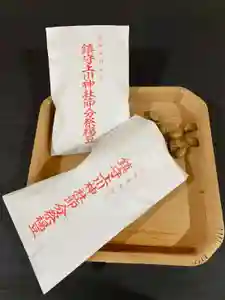 鎮守上川神社節分祭福豆
鎮守上川神社節分祭福豆